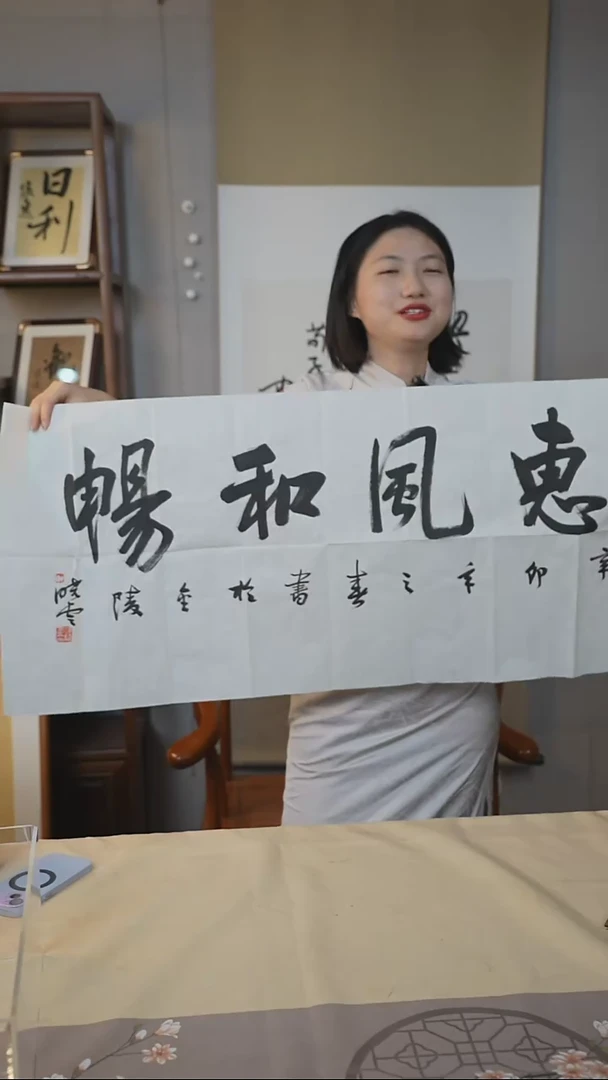 惠風和暢
辛卯年之春書於金陵
曉雲
日利